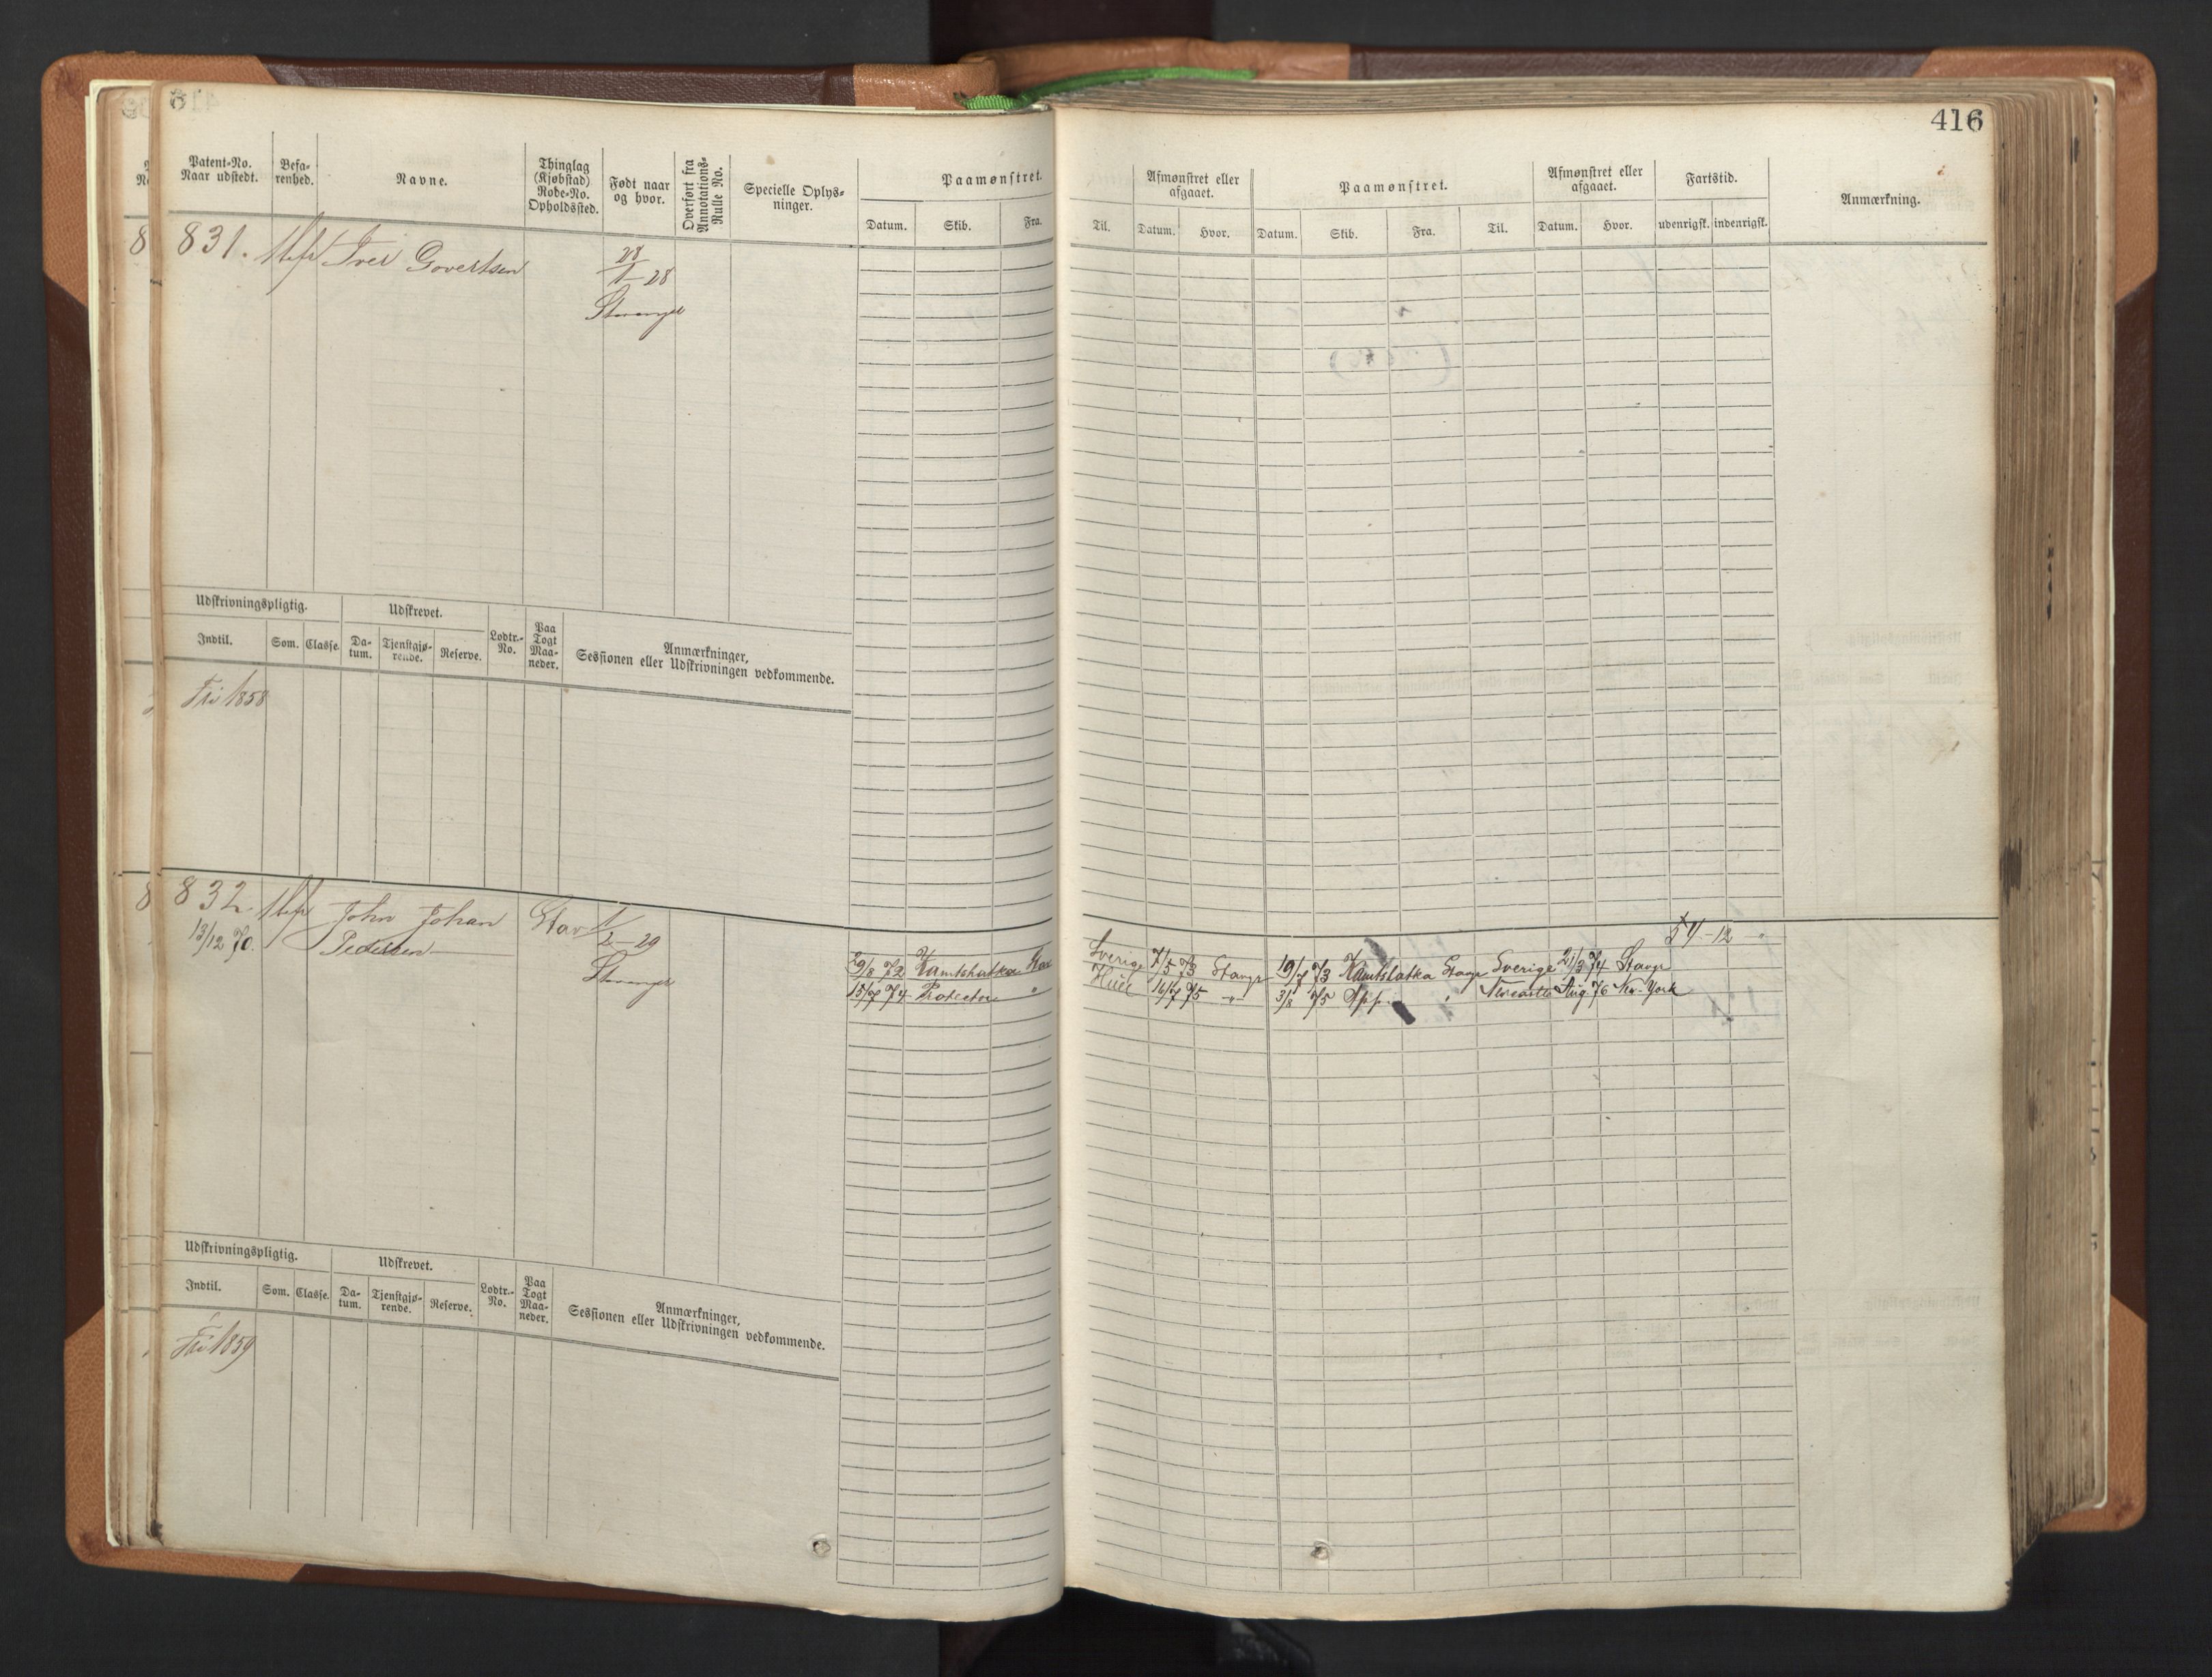 416
Patent-No. Naar udstedt. Befa-renhed. Navne. Thinglag (Kjøbstad) Rode-No. Opholdssted. Født naar og hvor. Overført fra Annotations-Rulle No. Specielle Oplys-ninger. Paamønstret. Datum. Skib. Fra.
Til. Afmønstret eller afgaaet. Datum. Hvor. Paamønstret. Datum. Skib. Fra. Til. Afmønstret eller afgaaet. Datum. Hvor. Fartstid. udenrigsk. indenrigsk. Anmærkning.
831. Iver Govertsen 28/1-28
Stavanger
Udskrivningspligtig. Udskrevet. Lodtr.-No. Paa Togt Maa-neder. Anmærkninger, Sessionen eller Udskrivningen vedkommende.
Indtil. Som. Classe. Da-tum. Tjenstgjø-rende. Reserve.
Fri 1858
832. John Johan Stav 1/2-29
13/12 70. Pedersen Stavanger
54-12
29/8 72 Kamtshatka Stav Sverige 7/5 73 Stavgr 19/7 73 Kamtslatka Stavgr Sverige 21/3 74 Stavgr
15/7 74 Protector " Hull 16/7 75 " 3/8 75 App. " Newcastle Aug. 76 New-York
Udskrivningspligtig. Udskrevet. Lodtr.-No. Paa Togt Maa-neder. Anmærkninger, Sessionen eller Udskrivningen vedkommende.
Indtil. Som. Classe. Da-tum. Tjenstgjø-rende. Reserve.
Fri 1859